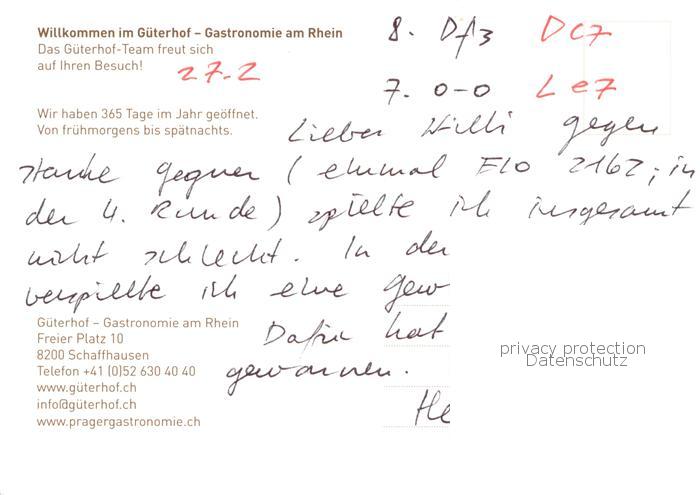 Willkommen im Güterhof – Gastronomie am Rhein
Das Güterhof-Team freut sich
auf Ihren Besuch!
27.2
8. Df3 Dc7
7. 0-0 Le7
Wir haben 365 Tage im Jahr geöffnet.
Von frühmorgens bis spätnachts.
Lieber Willi gegen
starke Gegner (einmal ELO 2162; in
der 4. Runde) spielte ich insgesamt
nicht schlecht. In der
verspielte ich eine gew
Dafür hat
gewonnen.
He
Güterhof – Gastronomie am Rhein
Freier Platz 10
8200 Schaffhausen
Telefon +41 (0)52 630 40 40
www.güterhof.ch
info@güterhof.ch
www.pragergastronomie.ch
privacy protection
Datenschutz